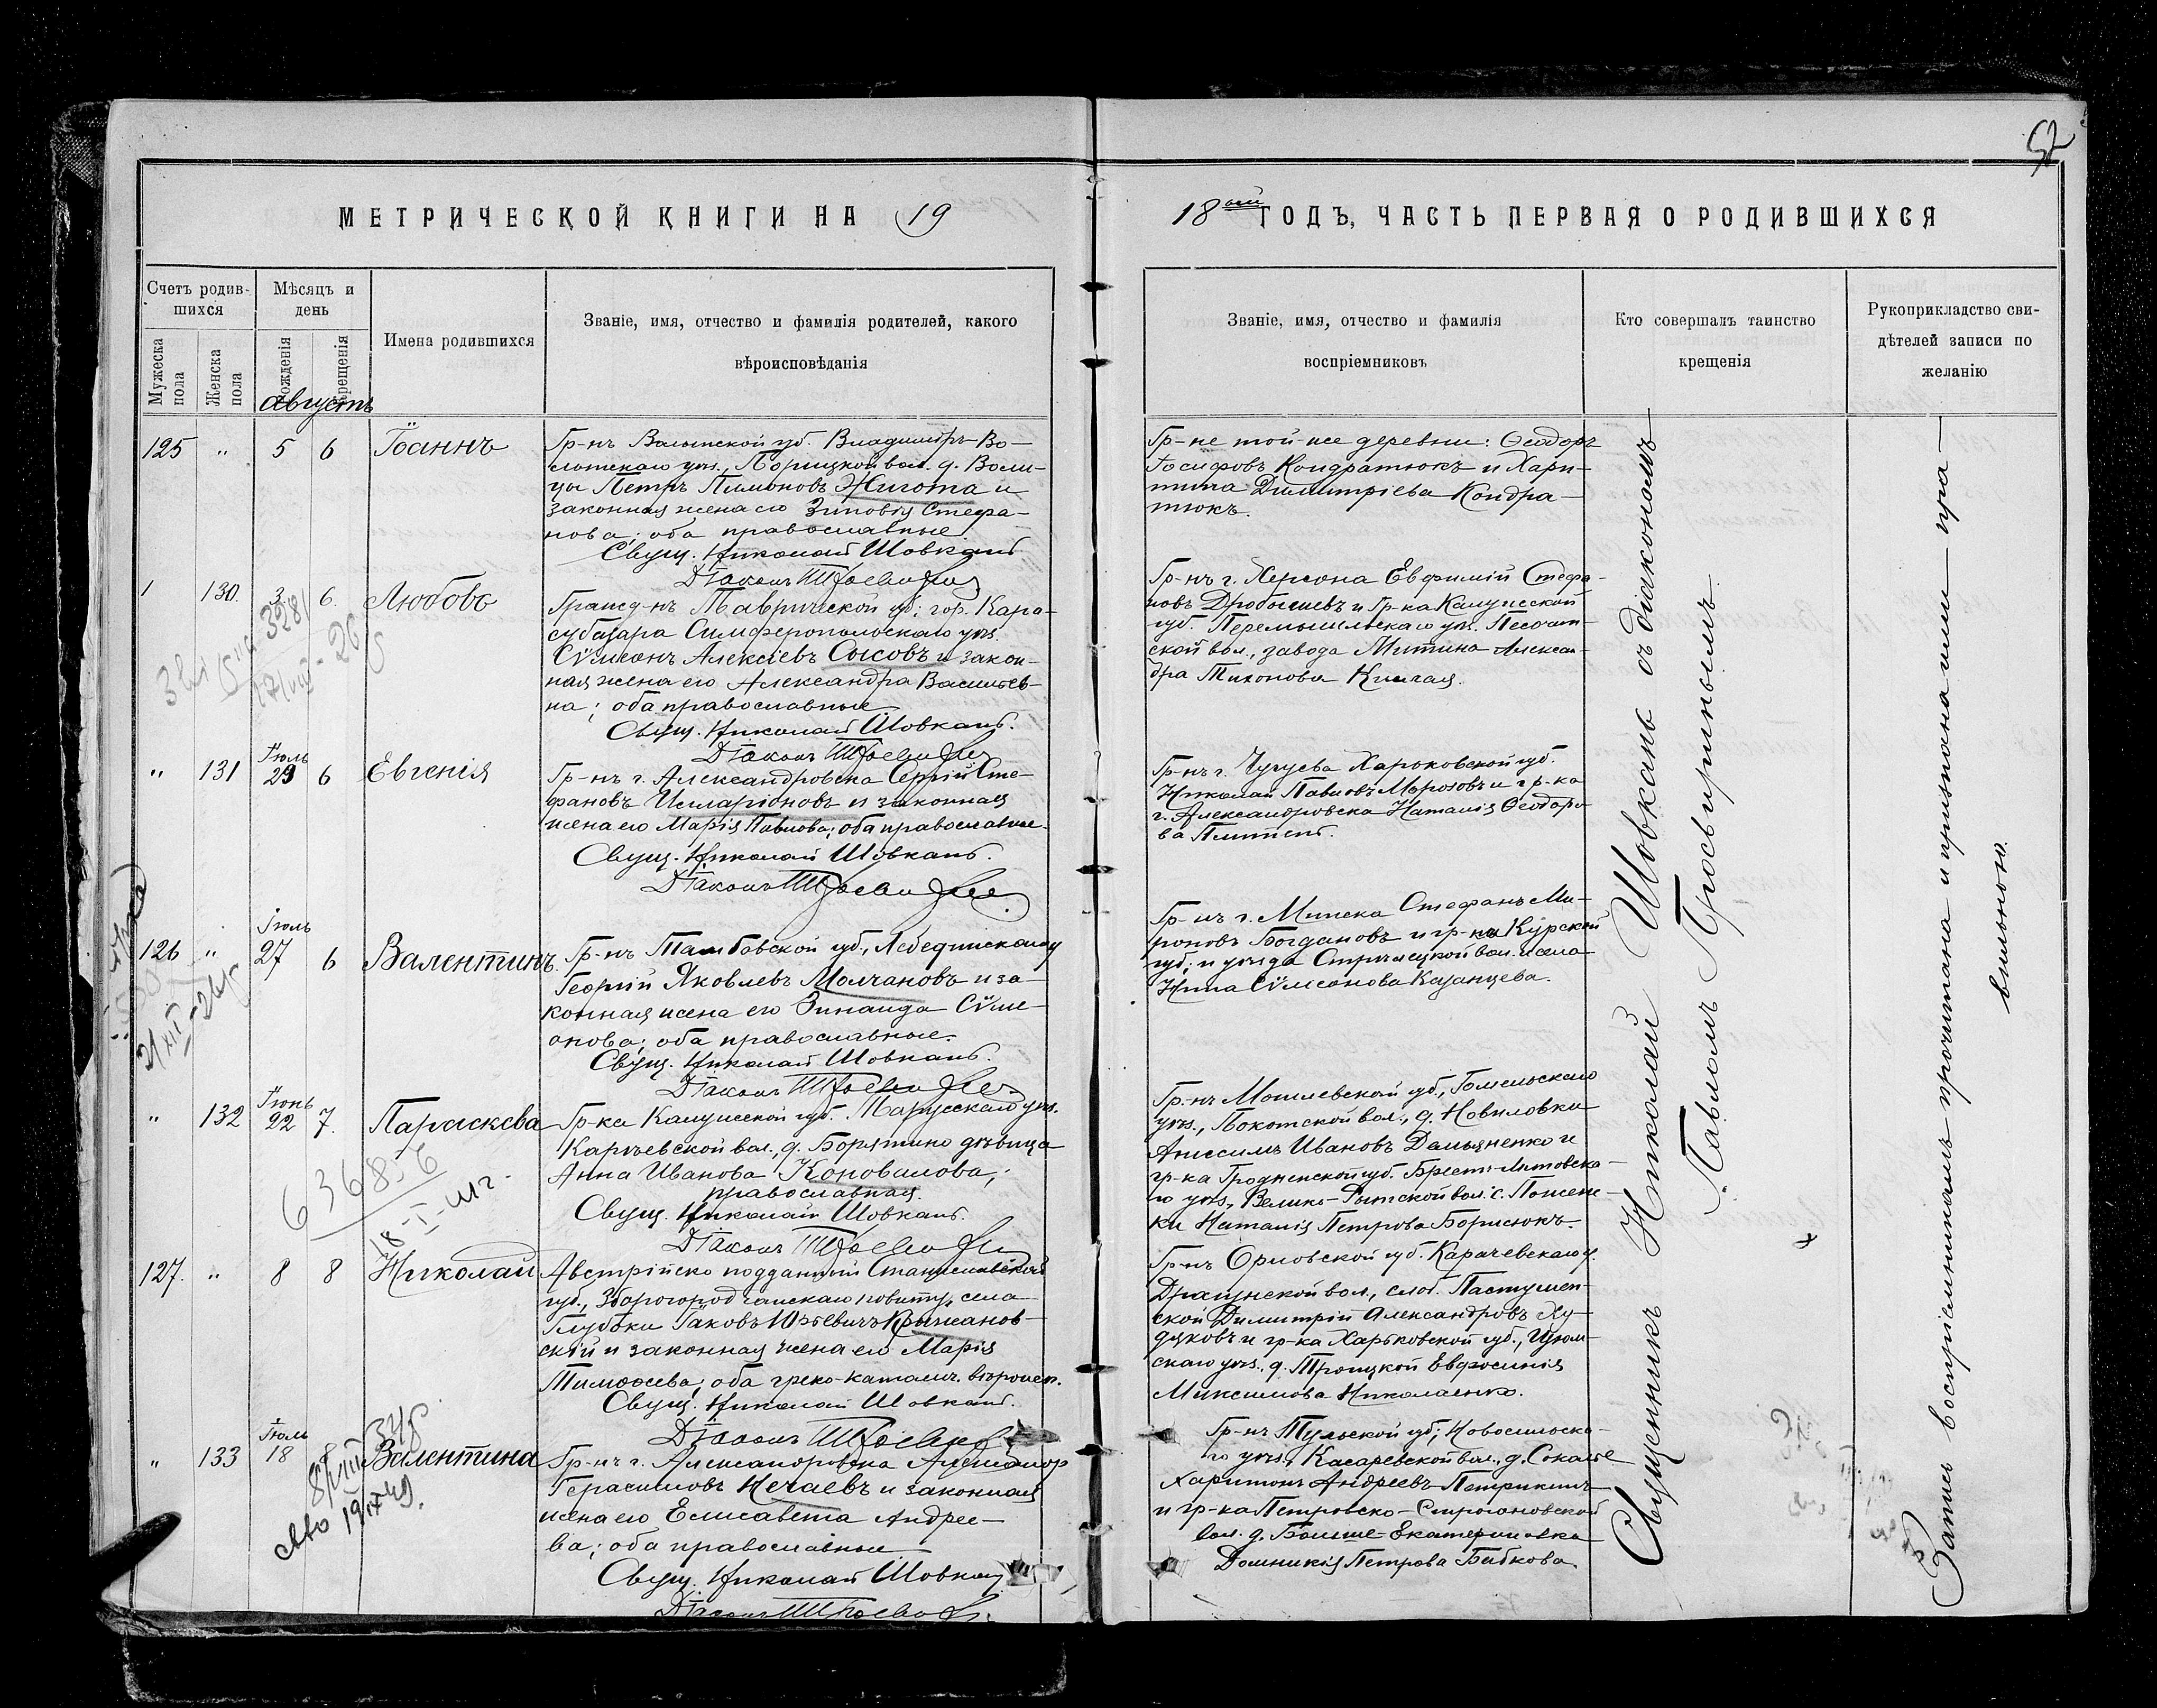 52
МЕТРИЧЕСКОЙ КНИГИ НА 19
18 ГОДЪ, ЧАСТЬ ПЕРВАЯ О РОДИВШИХСЯ
Счетъ родив-
шихся
Мужеска
пола
Женска
пола
Мѣсяцъ и
день
рожденія
крещенія
Имена родившихся
Званіе, имя, отчество и фамилія родителей, какого
вѣроисповѣданія
Званіе, имя, отчество и фамилія
воспріемниковъ
Кто совершалъ таинство
крещенія
Рукоприкладство сви-
дѣтелей записи по
желанію
Августъ
125 " 5 6 Іоаннъ
Гр-нъ Волынской губ. Владиміръ-Во-
лынскаго уѣз., Порицкой вол. д. Воли-
цы Петръ Пимоновъ Жигота и
законная жена его Зиновія Стефа-
нова; оба православные.
Свящ. Николай Шовкань
Діаконъ
Гр-не той-же деревни: Ѳеодоръ
Іосифовъ Кондратюкъ и Хари-
тина Димитріева Кондра-
тюкъ.
130. 3 6. Любовь
Гражд-нъ Таврической губ; гор. Кара-
субазара Симферопольскаго уѣз.
Сѵмеонъ Алексіевъ Сысовъ и закон-
ная жена его Александра Васильев-
на; оба православные
Свящ. Николай Шовкань.
Діаконъ
Гр-нъ г. Херсона Евфимій Стефа-
новъ Дробышевъ и Гр-ка Калужской
губ. Перемышльскаго уѣз. Песочен-
ской вол., завода Митина Алексан-
дра Тихонова
" 131 Іюль
29 6 Евгенія
Гр-нъ г. Александровска Сергій Сте-
фановъ Илларіоновъ и законная
жена его Марія Павлова; оба православные.
Свящ. Николай Шовкань.
Діаконъ
Гр-нъ г. Чугуева Харьковской губ.
Николай Павловъ Морозовъ и гр-ка
г. Александровска Наталія Ѳеодоро-
ва
126 " Іюль
27 6 Валентинъ.
Гр-нъ Тамбовской губ., Лебедянскаго у
Георгій Яковлевъ Молчановъ и за-
конная жена его Зинаида Сѵме-
онова; оба православные.
Свящ. Николай Шовкань.
Діаконъ
Гр-нъ г. Минска Стефанъ Ми-
роновъ Богдановъ и гр-ка Курской
губ; и уѣзда Стрѣлецкой вол. и села
Нина Сѵмеонова Казанцева.
" 132 Іюнь
22 7. Параскева
Гр-ка Калужской губ. Тарусскаго уѣз.
Карчевской вол., д. Борятино дѣвица
Анна Иванова Коновалова;
православная.
Свящ. Николай Шовкань.
Діаконъ
636856
18-I-
Гр-нъ Могилевской губ., Гомельскаго
уѣз., Покотской вол., д. Новиловки
Анисимъ Ивановъ Демьяненко и
гр-ка Гродненской губ. Брестъ-Литовска-
го уѣз., Велико-Рытской вол. с.
ки Наталія Петрова Борисюкъ
127. " 8 8 Николай
Австрійско подданный Станиславской
губ., повиту, села
Глубоки Іаковъ Крыжанов-
скій и законная жена его Марія
Тимоѳеева; оба греко-католич. вѣроисп.
Свящ. Николай Шовкань.
Діаконъ
Гр-нъ Орловской губ. Карачевскаго у.
вол., слоб.
ской Димитрій Александровъ Ху-
дяковъ и гр-ка Харьковской губ., Изюм-
скаго уѣз., д. Троицкой Евфросинія
Максимова Николаенко.
" 133 Іюль
18 8 Валентина
Гр-нъ г. Александровска Александръ
Герасимовъ Нечаевъ и законная
жена его Елисавета Андрее-
ва; оба православные
Свящ. Николай Шовкань
Діаконъ
Гр-нъ Тульской губ; Новосильска-
го уѣз., вол., д.
Харитонъ Андреевъ Петрикинъ
и гр-ка Петровско-Строгановской
вол. д. Больше-Екатериновка
Домникія Петрова Бибкова.
Священникъ Николай Шовкань съ діакономъ
Павломъ Просвиринымъ.
Запись воспріемникамъ прочитана и признана ими пра-
вильною.